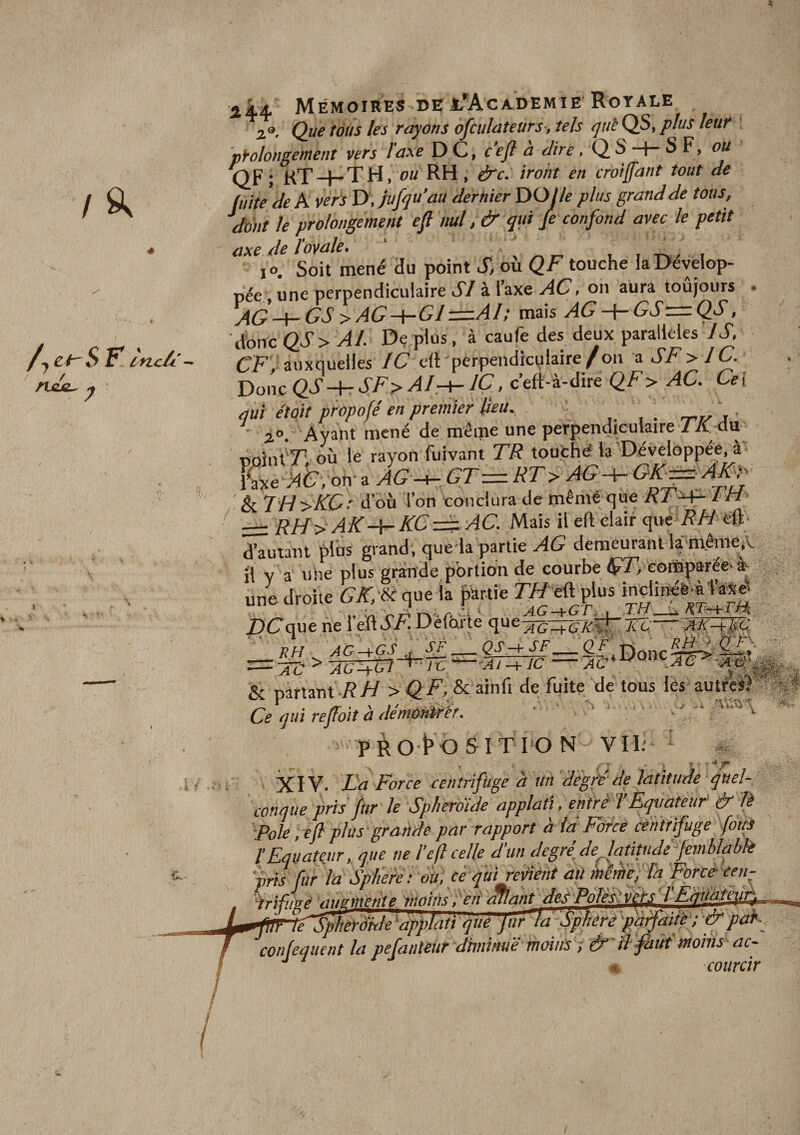 244 MÉMOIRES DE L'ACADEMIE ROYALE
2°. Que tous les rayons osculateurs, tels que QS, plus leur
prolongement vers l'axe DC, c'est à dire, QS+SF, ou
QF; RT+TH, ou RH, &c. iront en croissant tout de
suite de A vers D, jusqu'au dernier DO/le plus grand de tous,
/ &
dont le prolongement est nul, & qui se confond avec le petit
axe de l'ovale.
1°. Soit mené du point S, où QF touche la Dévelop-
pée, une perpendiculaire SI à l'axe AC, on aura toûjours
AG+GS>AG+GI=AI; mais AG+GS=QS,
donc QS>AI. De plus, à cause des deux paralleles IS,
/, et SF incli-
CF, auxquelles IC est perpendiculaire/on a SF>IC.
née,
Donc QS+SF>AI+IC, c'est-à-dire QF>AC. Ce
qui étoit proposé en premier lieu.
2°. Ayant mené de même une perpendiculaire TK du
point T, où le rayon suivant TR touche la Développée, à
l'axe AC, on a AG+GT=RT>AG+GK=AK,
& TH>KC: d'où l'on conclura de même que RT+TH
=RH>AK+KC=AC. Mais il est clair que RH est
d'autant plus grand, que la partie AG demeurant la même,
il y a une plus grande portion de courbe GT, comparée à
une droite GK, & que la partie TH est plus inclinée à l'axe
DC que ne l'est SF. Desorte que AG+GT/AG+GK + TH/KC = RT+TH/AK+KC
= RH/AC > AG+GS/AG+GI + SF/IC = QS+SF/AI+IC = QF/AC. Donc RH/AC > QF/AC,
& partant RH>QF, & ainsi de suite de tous les autres.
Ce qui restoit à démontrer.
PROPOSITION VII.
XIV. La Force centrifuge à un degré de latitude quel-
conque pris sur le Spheroïde applati, entre l'Equateur & le
Pole, est plus grande par rapport à la Force centrifuge sous
l'Equateur, que ne l'est celle d'un degré de latitude semblable
pris sur la Sphere: ou, ce qui revient au même, la Force cen-
trifuge augmente moins, en allant des Poles vers l'Equateur,
sur le Spheroïde applati que sur la Sphere parfaite; & par
conséquent la pesanteur diminuë moins; & il faut moins ac-
courcir